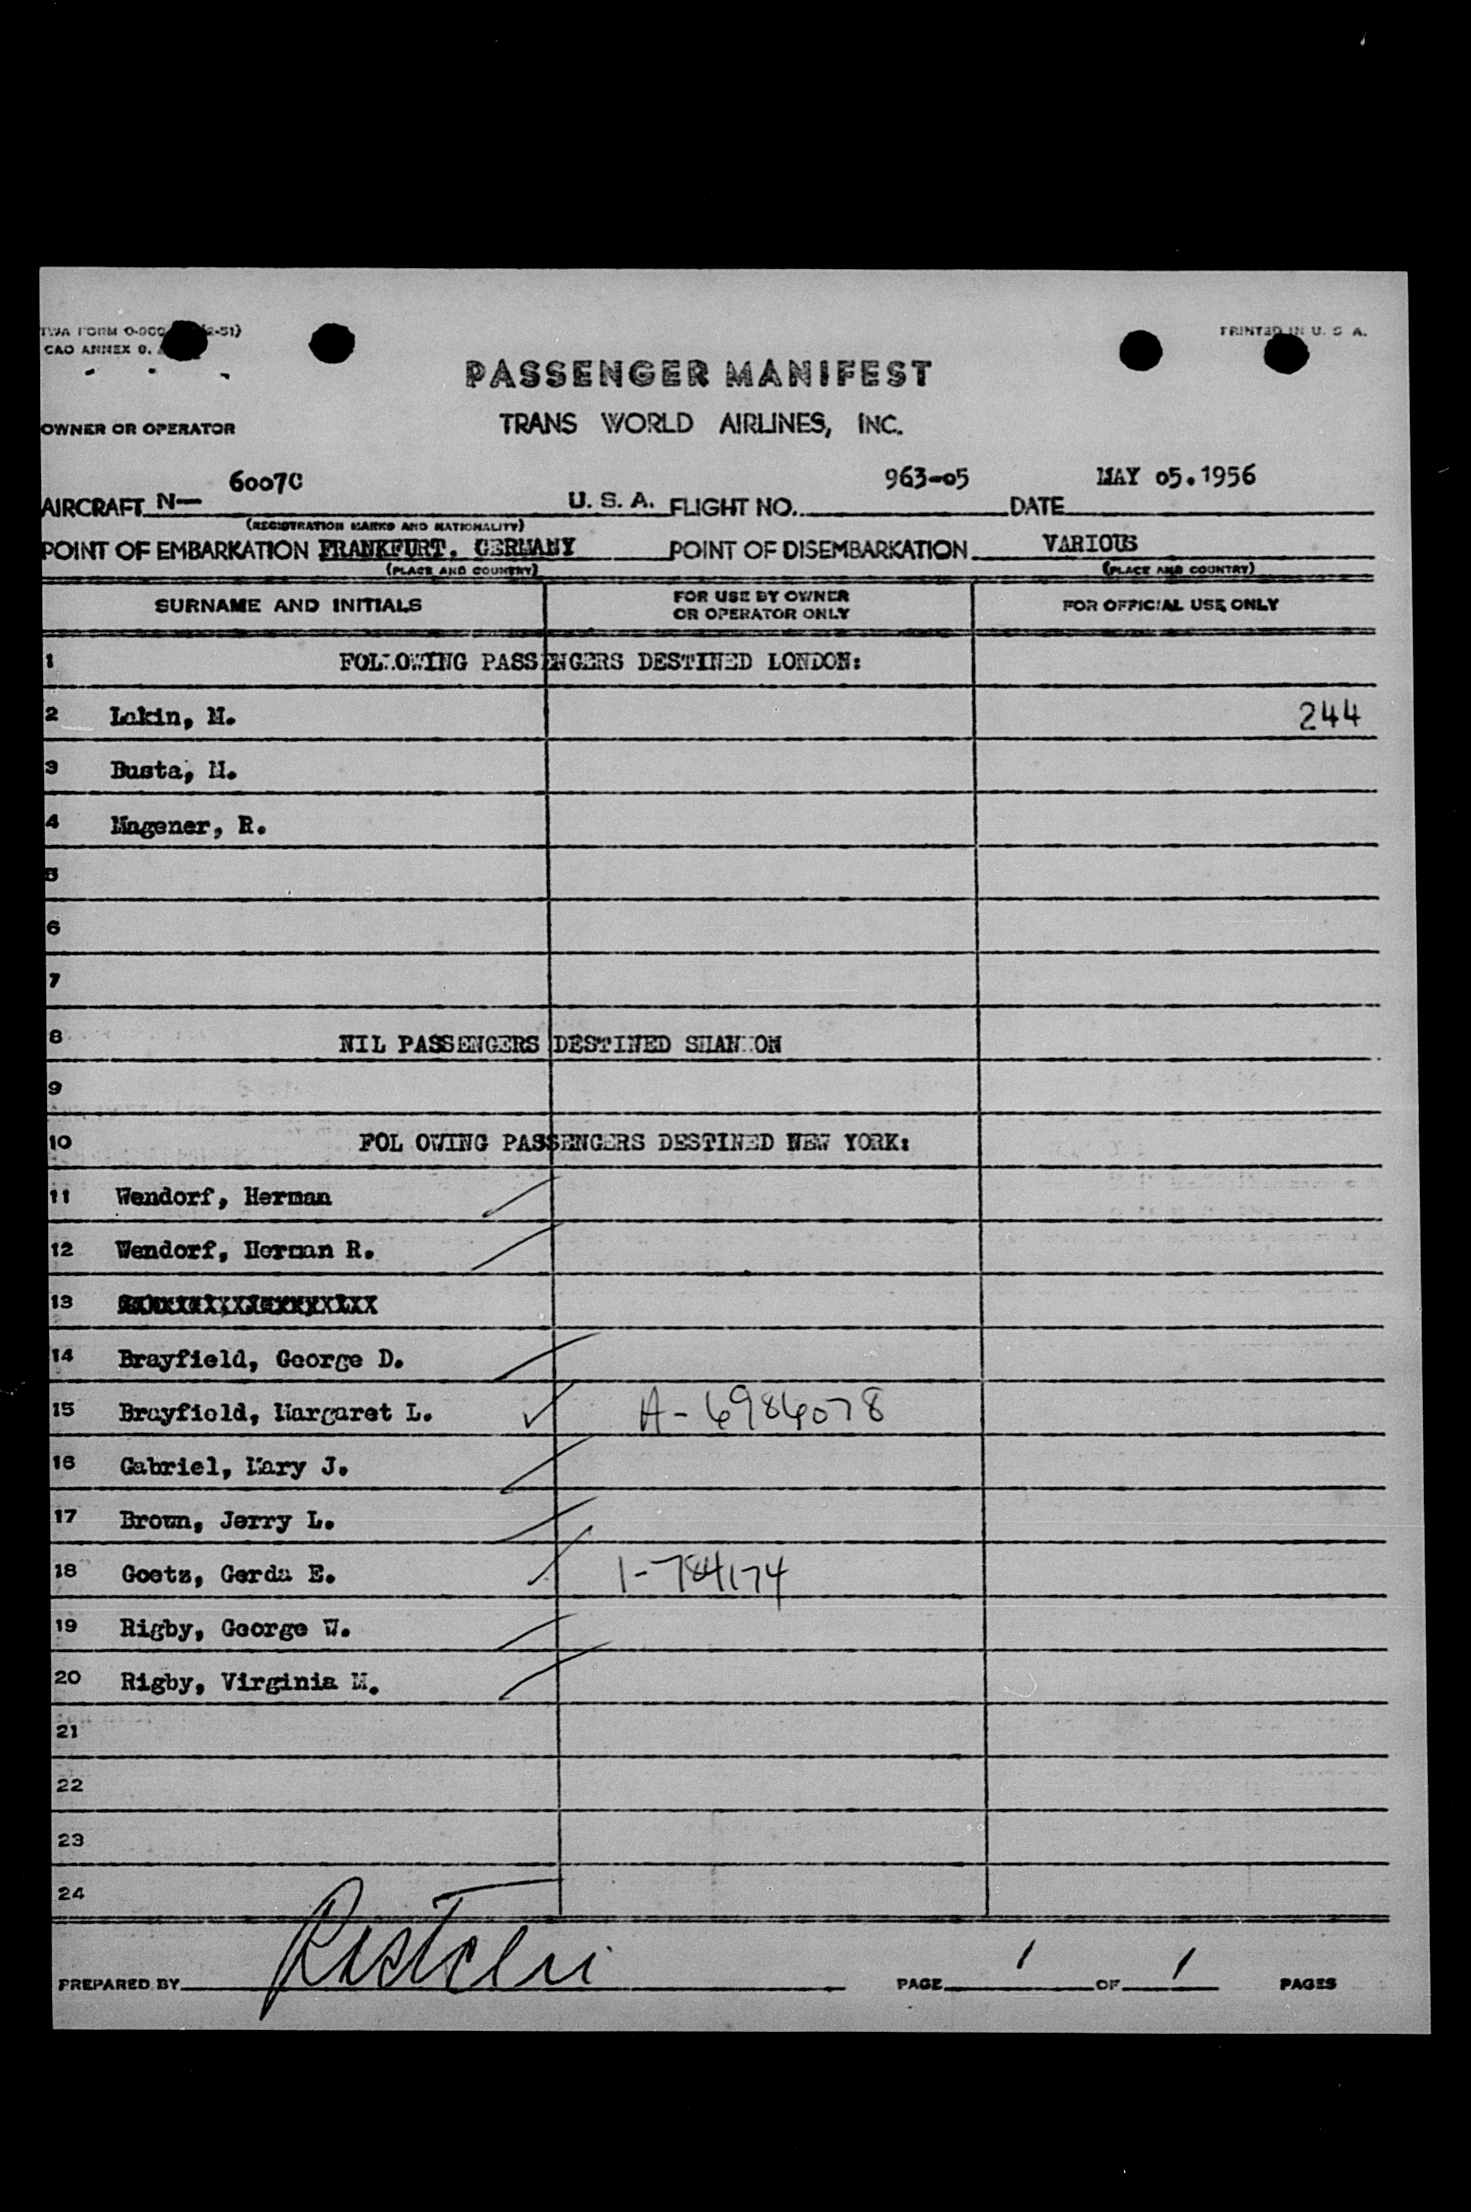 TWA FORM O-900 (2-51)
PRINTED IN U. S. A.
CAO ANNEX 9.
PASSENGER MANIFEST
OWNER OR OPERATOR
TRANS WORLD AIRLINES, INC.
AIRCRAFT N- 6007C U. S. A. FLIGHT NO. 963-05 DATE MAY 05.1956
(REGISTRATION MARKS AND NATIONALITY)
POINT OF EMBARKATION FRANKFURT. GERMANY POINT OF DISEMBARKATION VARIOUS
(PLACE AND COUNTRY) (PLACE AND COUNTRY)
SURNAME AND INITIALS FOR USE BY OWNER OR OPERATOR ONLY FOR OFFICIAL USE ONLY
1 FOLLOWING PASSENGERS DESTINED LONDON:
2 Lakin, M. 244
3 Busta, M.
4 Magener, R.
5
6
7
8 NIL PASSENGERS DESTINED SHANNON
9
10 FOL OWING PASSENGERS DESTINED NEW YORK:
11 Wendorf, Herman
12 Wendorf, Herman R.
13
14 Brayfield, George D.
15 Brayfield, Margaret L. A-6986078
16 Gabriel, Mary J.
17 Brown, Jerry L.
18 Goetz, Gerda E. 1-784174
19 Rigby, George W.
20 Rigby, Virginia M.
21
22
23
24
PREPARED BY PAGE 1 OF 1 PAGES